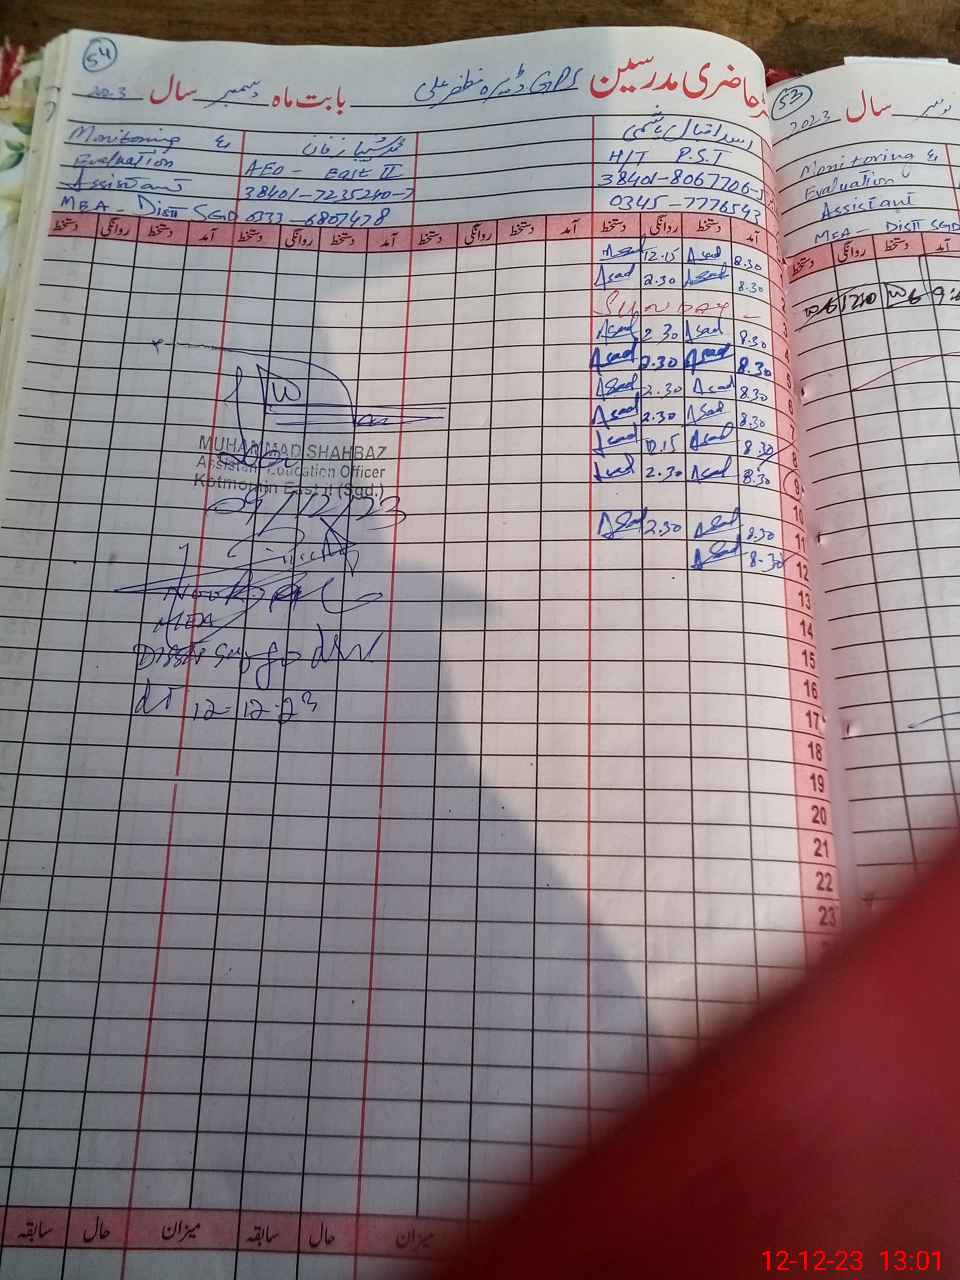 54
حاضری مدرسین GPS ڈیرہ مظفر علی بابت ماہ دسمبر سال 2023
اسد اقبال ہاشمی
H/T P.S.T
38401-8067706-5
0345-7776543
AEO - East II
38401-7235240-7
0333-6807478
Monitoring &
Evaluation
Assistant
MEA - Distt SGD
آمد دستخط روانگی دستخط آمد دستخط روانگی دستخط آمد دستخط روانگی دستخط
1 8.30 Asad 12.15 Asad
2 8.30 Asad 2.30 Asad
3 Sunday
4 8.30 Asad 2.30 Asad
5 8.30 Asad 2.30 Asad
6 8.30 Asad 2.30 Asad
7 8.30 Asad 2.30 Asad
8 8.30 Asad 12.15 Asad
9 8.30 Asad 2.30 Asad
10
11 8.30 Asad 2.30 Asad
12 8.30 Asad
13
14
15
16
17
18
19
20
21
22
23
MUHAMMAD SHAHBAZ
Assistant Education Officer
Kotmomin East II (Sgd.)
09/12/23
MEA
Distt Sargodha
dt 12-12-23
میزان حال سابقہ میزان حال سابقہ
53
سال 2023
Monitoring &
Evaluation
Assistant
MEA - Distt SGD
آمد دستخط روانگی دستخط
12-12-23 13:01